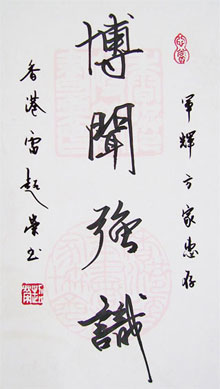 軍輝方家惠存
博聞強識
香港雷超榮書